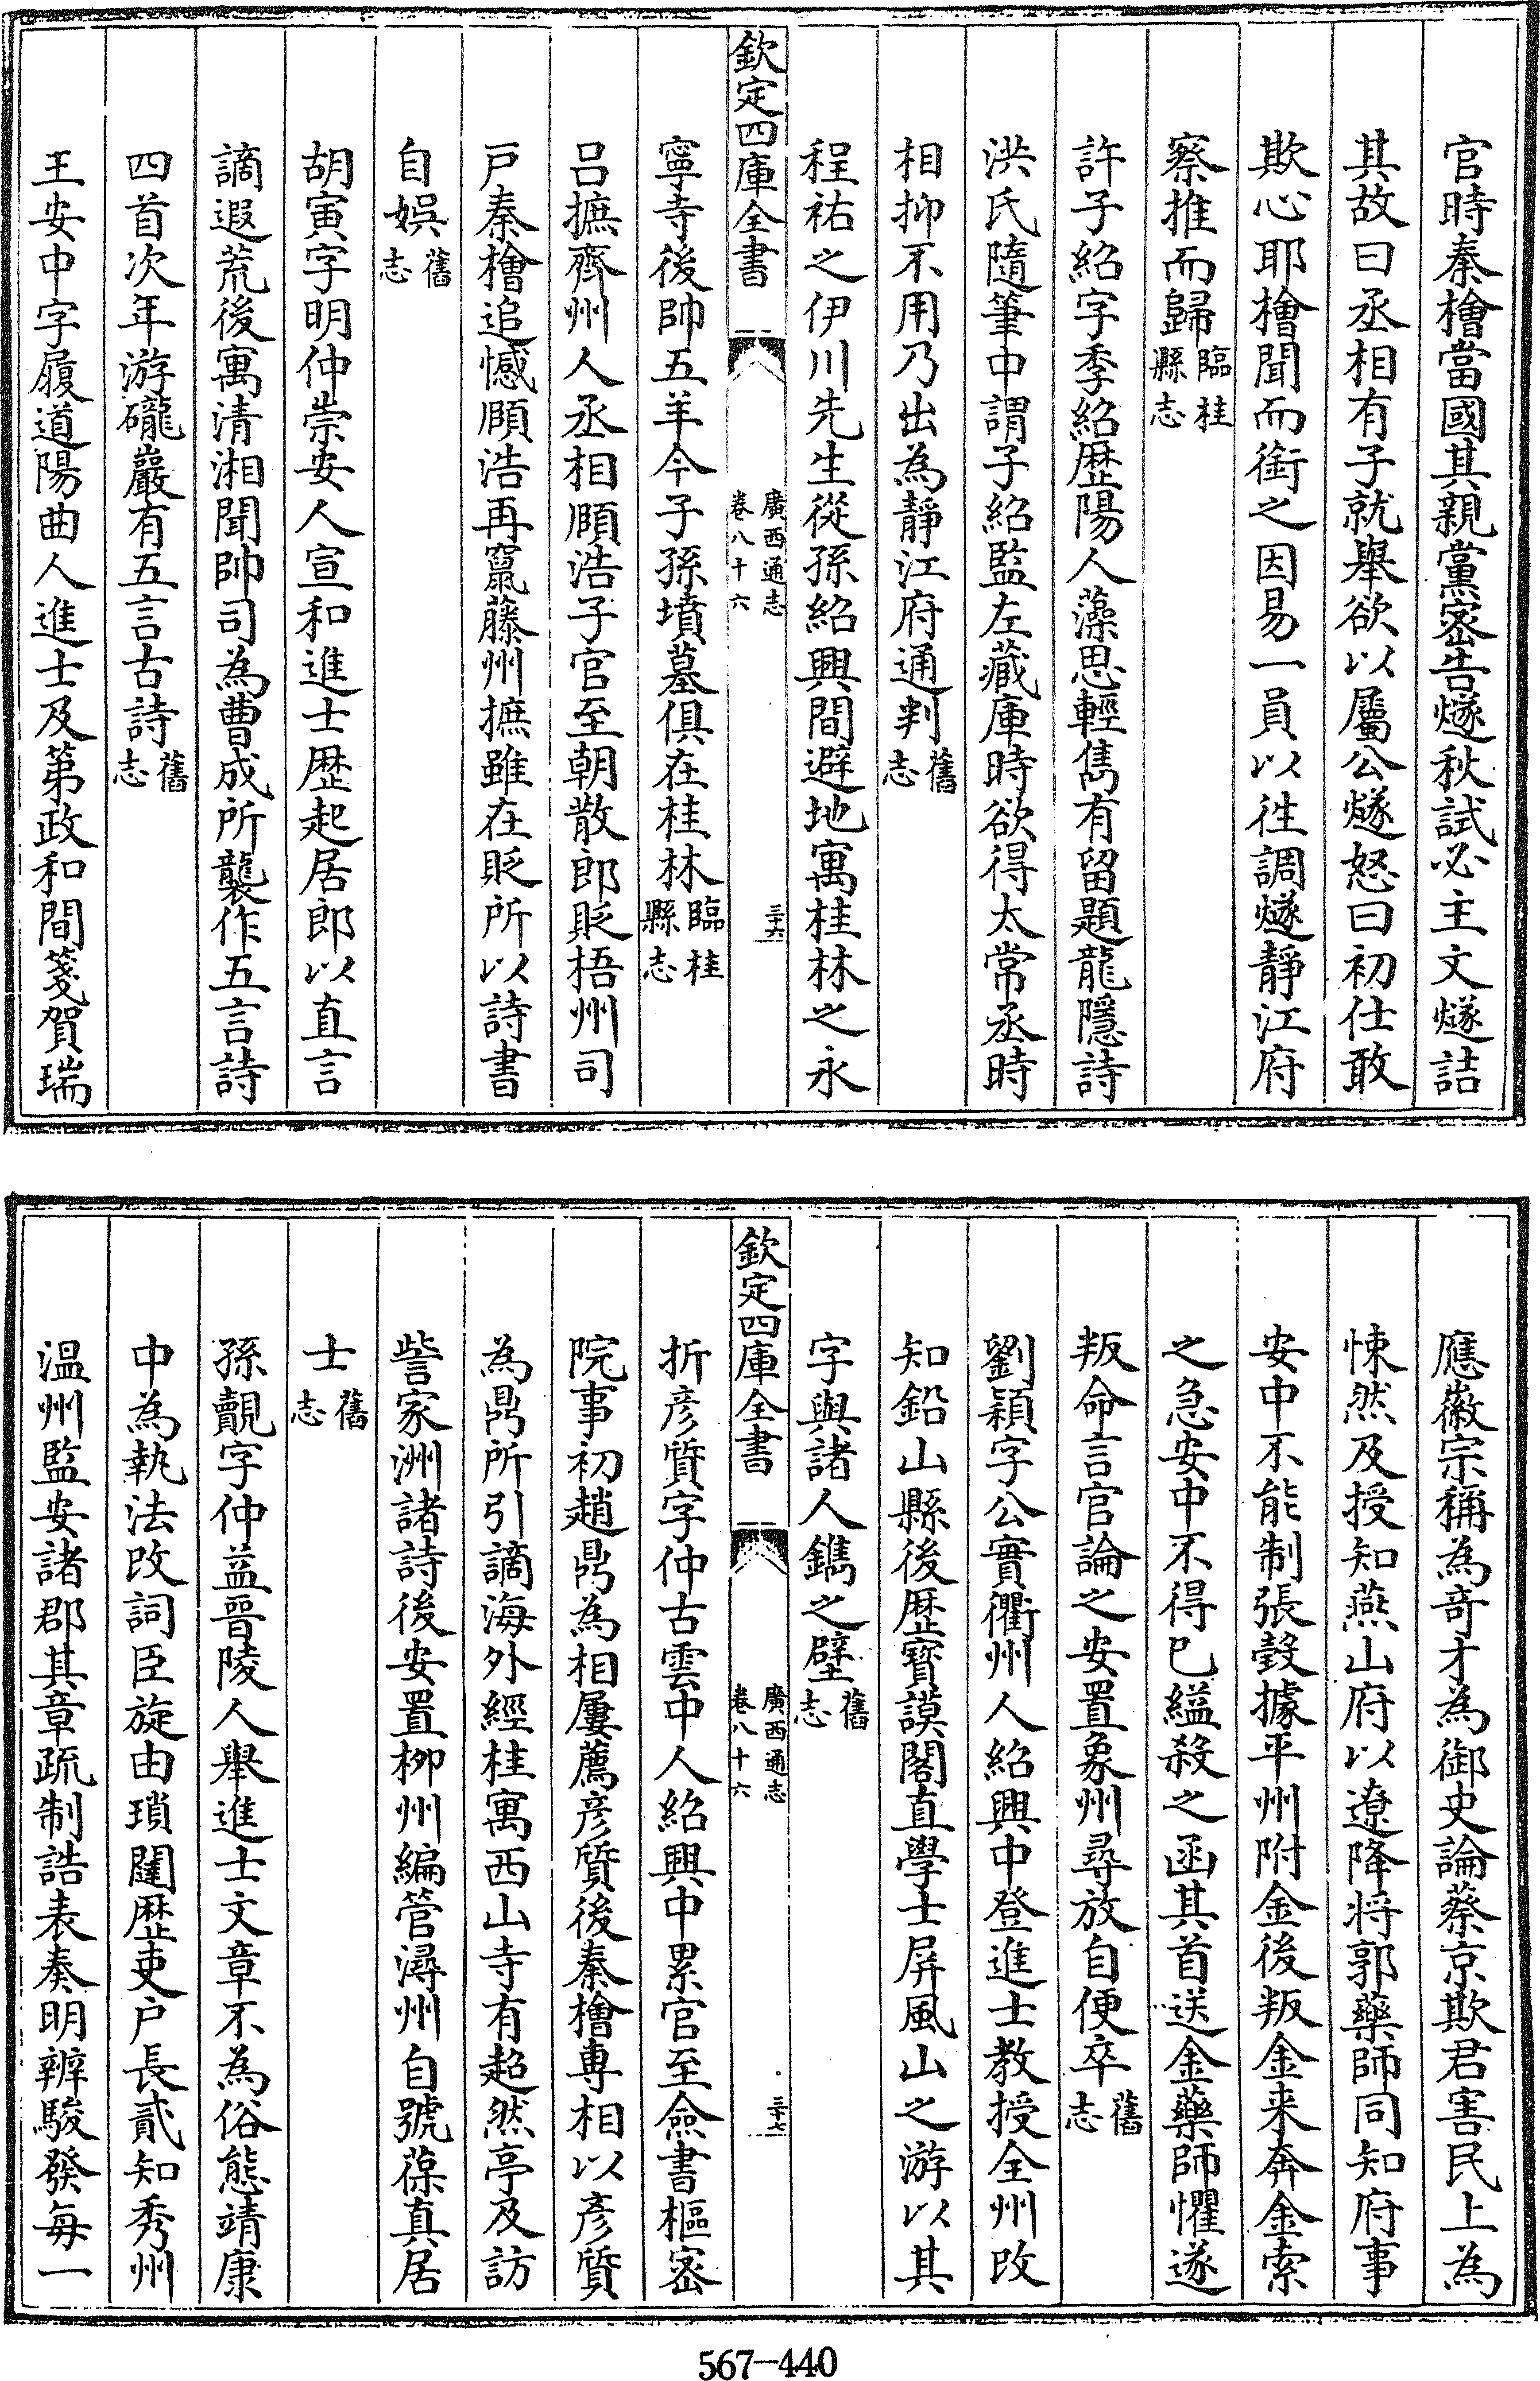 官時秦檜當國其親黨密告燧秋試必主文燧詰
其故曰丞相有子就舉欲以屬公燧怒曰初仕敢
欺心耶檜聞而銜之因易一員以往調燧靜江府
察推而歸臨桂縣志
許子紹字季紹歷陽人藻思輕雋有留題龍隱詩
洪氏隨筆中謂子紹監左藏庫時欲得太常丞時
相抑不用乃出為靜江府通判舊志
程祐之伊川先生從孫紹興間避地寓桂林之永
欽定四庫全書
廣西通志
卷八十六
三十六
寧寺後帥五羊今子孫墳墓俱在桂林臨桂縣志
吕摭齊州人丞相頤浩子官至朝散郎貶梧州司
戸秦檜追憾頤浩再竄藤州摭雖在貶所以詩書
自娯舊志
胡寅字明仲崇安人宣和進士歷起居郎以直言
謫遐荒後寓清湘聞帥司為曹成所襲作五言詩
四首次年游礲巖有五言古詩舊志
王安中字履道陽曲人進士及第政和間箋賀瑞
應徽宗稱為奇才為御史論蔡京欺君害民上為
悚然及授知燕山府以遼降将郭藥師同知府事
安中不能制張瑴據平州附金後叛金来奔金索
之急安中不得已縊殺之函其首送金藥師懼遂
叛命言官論之安置象州尋放自便卒舊志
劉穎字公實衢州人紹興中登進士教授全州改
知鉛山縣後歷寶謨閣直學士屏風山之游以其
字與諸人鐫之壁舊志
欽定四庫全書
廣西通志
卷八十六
三十七
折彦質字仲古雲中人紹興中累官至僉書樞密
院事初趙鼎為相屢薦彦質後秦檜專相以彦質
為鼎所引謫海外經桂寓西山寺有超然亭及訪
訾家洲諸詩後安置栁州編管潯州自號葆真居
士舊志
孫覿字仲益晉陵人舉進士文章不為俗態靖康
中為執法改詞臣旋由瑣闥歷吏戶長貳知秀州
温州監安諸郡其章疏制誥表奏明辨駿發每一
567-440